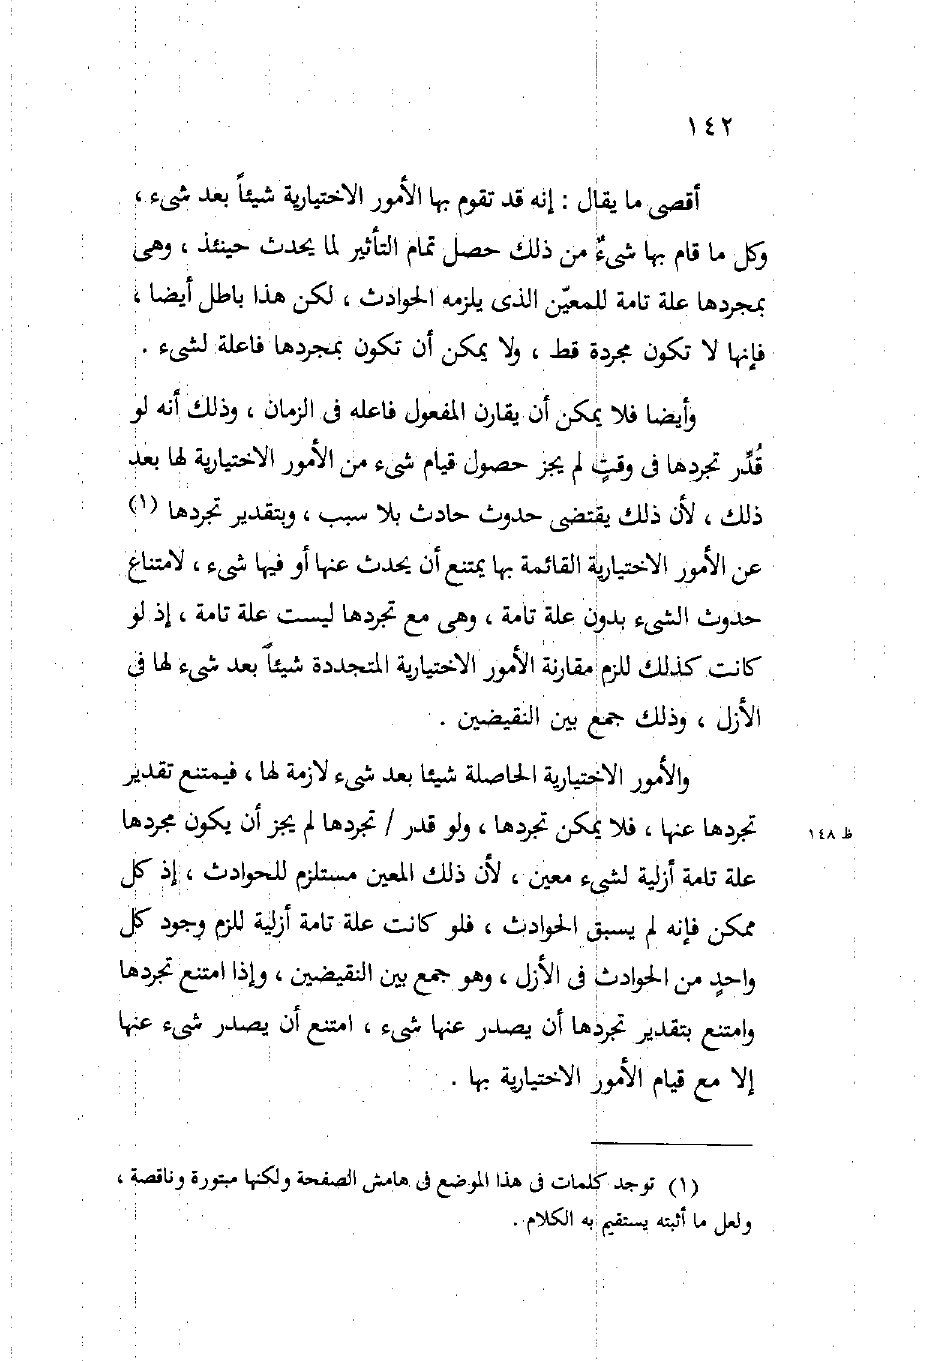 ١٤٢
أقصى ما يقال : إنه قد تقوم بها الأمور الاختيارية شيئاً بعد شىء ،
وكل ما قام بها شىءٌ من ذلك حصل تمام التأثير لما يحدث حينئذ ، وهى
بمجردها علة تامة للمعيّن الذى يلزمه الحوادث ، لكن هذا باطل أيضا ،
فإنها لا تكون مجردة قط ، ولا يمكن أن تكون بمجردها فاعلة لشىء .
وأيضا فلا يمكن أن يقارن المفعول فاعله فى الزمان ، وذلك أنه لو
قُدِّر تجردها فى وقتٍ لم يجز حصول قيام شىء من الأمور الاختيارية لها بعد
ذلك ، لأن ذلك يقتضى حدوث حادث بلا سبب ، وبتقدير تجردها (١)
عن الأمور الاختيارية القائمة بها يمتنع أن يحدث عنها أو فيها شىء ، لامتناع
حدوث الشىء بدون علة تامة ، وهى مع تجردها ليست علة تامة ، إذ لو
كانت كذلك للزم مقارنة الأمور الاختيارية المتجددة شيئاً بعد شىء لها فى
الأزل ، وذلك جمع بين النقيضين .
والأمور الاختيارية الحاصلة شيئا بعد شىء لازمة لها ، فيمتنع تقدير
تجردها عنها ، فلا يمكن تجردها ، ولو قدر / تجردها لم يجز أن يكون مجردها
ظ ١٤٨
علة تامة أزلية لشىء معين ، لأن ذلك المعين مستلزم للحوادث ، إذ كل
ممكن فإنه لم يسبق الحوادث ، فلو كانت علة تامة أزلية للزم وجود كل
واحدٍ من الحوادث فى الأزل ، وهو جمع بين النقيضين ، وإذا امتنع تجردها
وامتنع بتقدير تجردها أن يصدر عنها شىء ، امتنع أن يصدر شىء عنها
إلا مع قيام الأمور الاختيارية بها .
(١) توجد كلمات فى هذا الموضع فى هامش الصفحة ولكنها مبتورة وناقصة ،
ولعل ما أثبته يستقيم به الكلام .